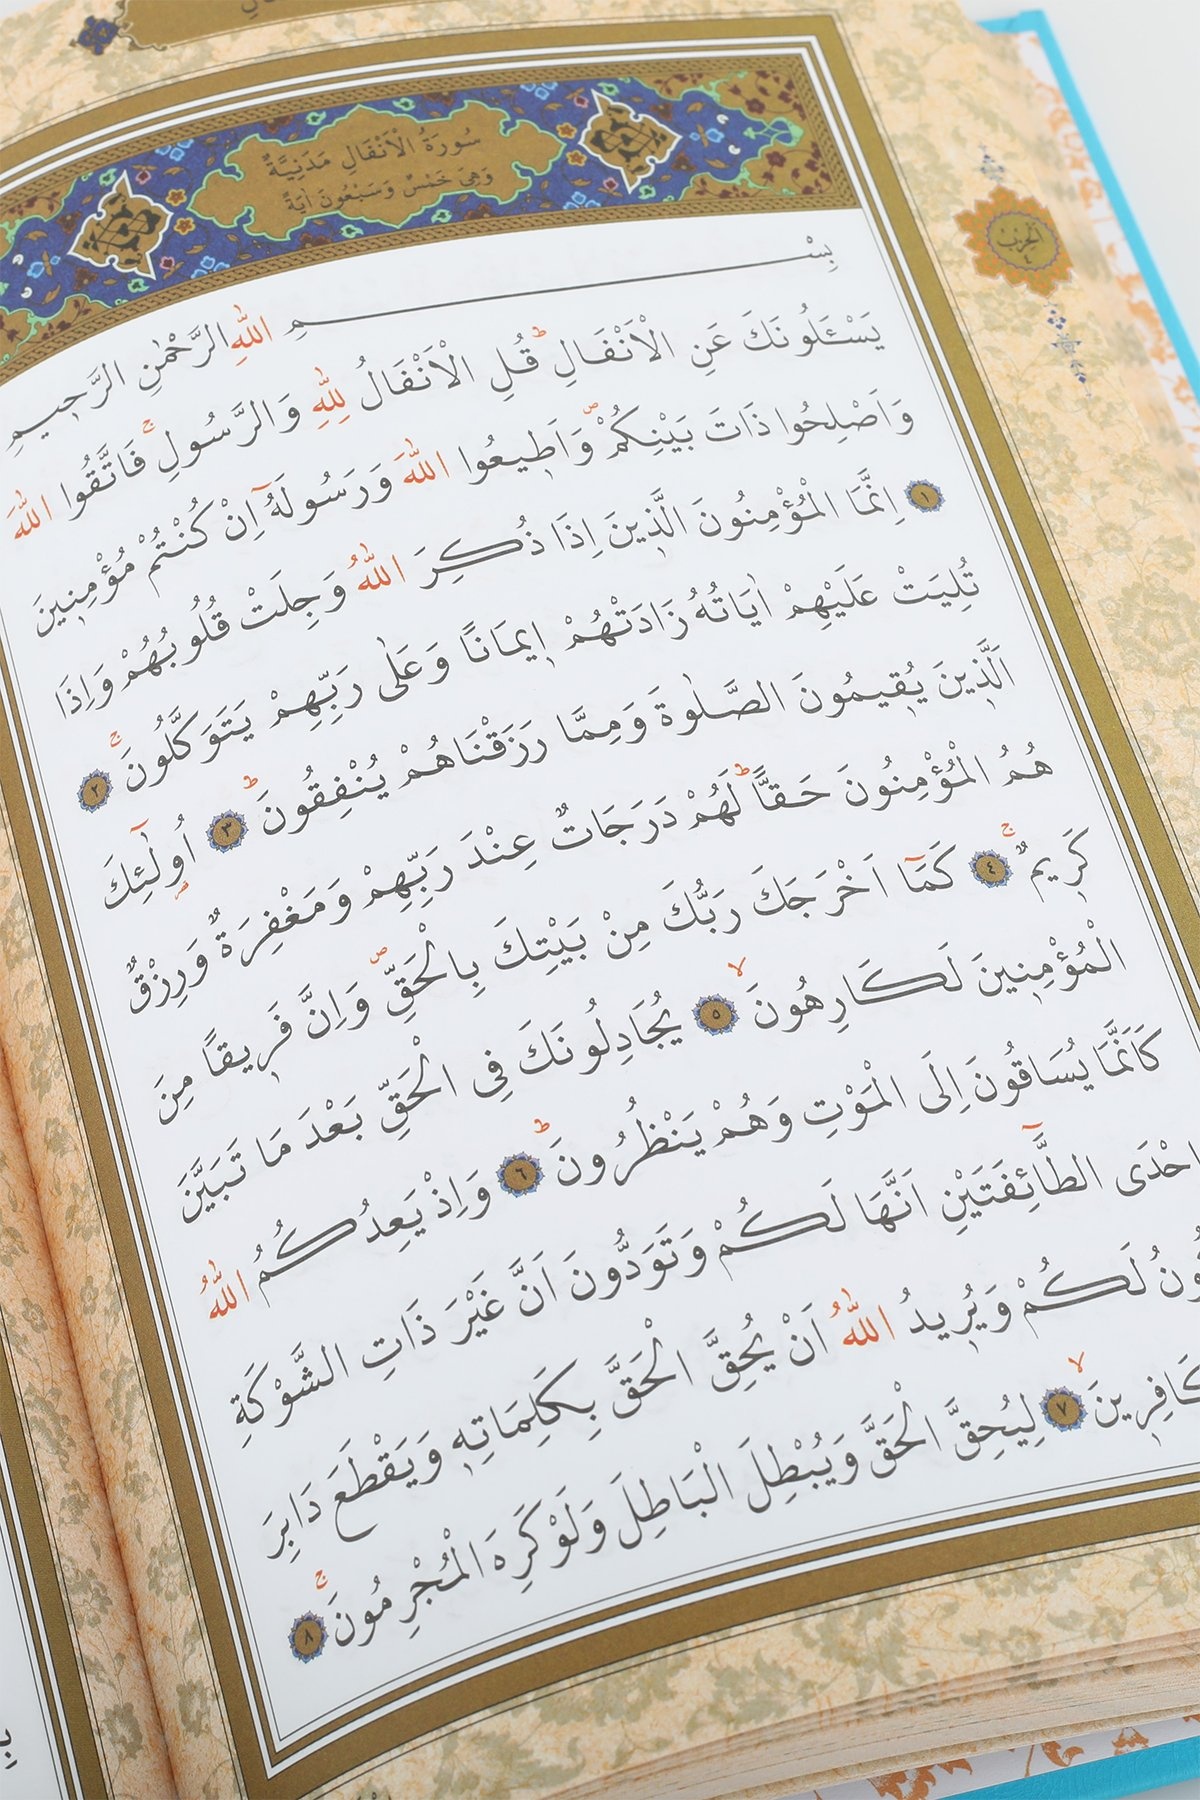 سُورَةُ الْاَنْفَالِ مَدَنِيَّةٌ
وَهِىَ خَمْسٌ وَسَبْعُونَ اٰيَةً
الحزب
٤
بِسْمِ اللّٰهِ الرَّحْمٰنِ الرَّحِيمِ
يَسْـَٔلُونَكَ عَنِ الْاَنْفَالِۜ قُلِ الْاَنْفَالُ لِلّٰهِ وَالرَّسُولِۚ فَاتَّقُوا اللّٰهَ
وَاَصْلِحُوا ذَاتَ بَيْنِكُمْۖ وَاَطِيعُوا اللّٰهَ وَرَسُولَهُٓ اِنْ كُنْتُمْ مُؤْمِنِينَ
١ اِنَّمَا الْمُؤْمِنُونَ الَّذِينَ اِذَا ذُكِرَ اللّٰهُ وَجِلَتْ قُلُوبُهُمْ وَاِذَا
تُلِيَتْ عَلَيْهِمْ اٰيَاتُهُ زَادَتْهُمْ اِيمَانًا وَعَلٰى رَبِّهِمْ يَتَوَكَّلُونَۚ ٢
اَلَّذِينَ يُقِيمُونَ الصَّلٰوةَ وَمِمَّا رَزَقْنَاهُمْ يُنْفِقُونَۜ ٣ اُو۬لٰٓئِكَ
هُمُ الْمُؤْمِنُونَ حَقًّاۜ لَهُمْ دَرَجَاتٌ عِنْدَ رَبِّهِمْ وَمَغْفِرَةٌ وَرِزْقٌ
كَرِيمٌۚ ٤ كَمَٓا اَخْرَجَكَ رَبُّكَ مِنْ بَيْتِكَ بِالْحَقِّۖ وَاِنَّ فَرِيقًا مِنَ
الْمُؤْمِنِينَ لَكَارِهُونَۙ ٥ يُجَادِلُونَكَ فِى الْحَقِّ بَعْدَ مَا تَبَيَّنَ
كَاَنَّمَا يُسَاقُونَ اِلَى الْمَوْتِ وَهُمْ يَنْظُرُونَۜ ٦ وَاِذْ يَعِدُكُمُ اللّٰهُ
اِحْدَى الطَّٓائِفَتَيْنِ اَنَّهَا لَكُمْ وَتَوَدُّونَ اَنَّ غَيْرَ ذَاتِ الشَّوْكَةِ
لَكُمْ وَيُرِيدُ اللّٰهُ اَنْ يُحِقَّ الْحَقَّ بِكَلِمَاتِهِ وَيَقْطَعَ دَابِرَ
٧ لِيُحِقَّ الْحَقَّ وَيُبْطِلَ الْبَاطِلَ وَلَوْ كَرِهَ الْمُجْرِمُونَۚ ٨